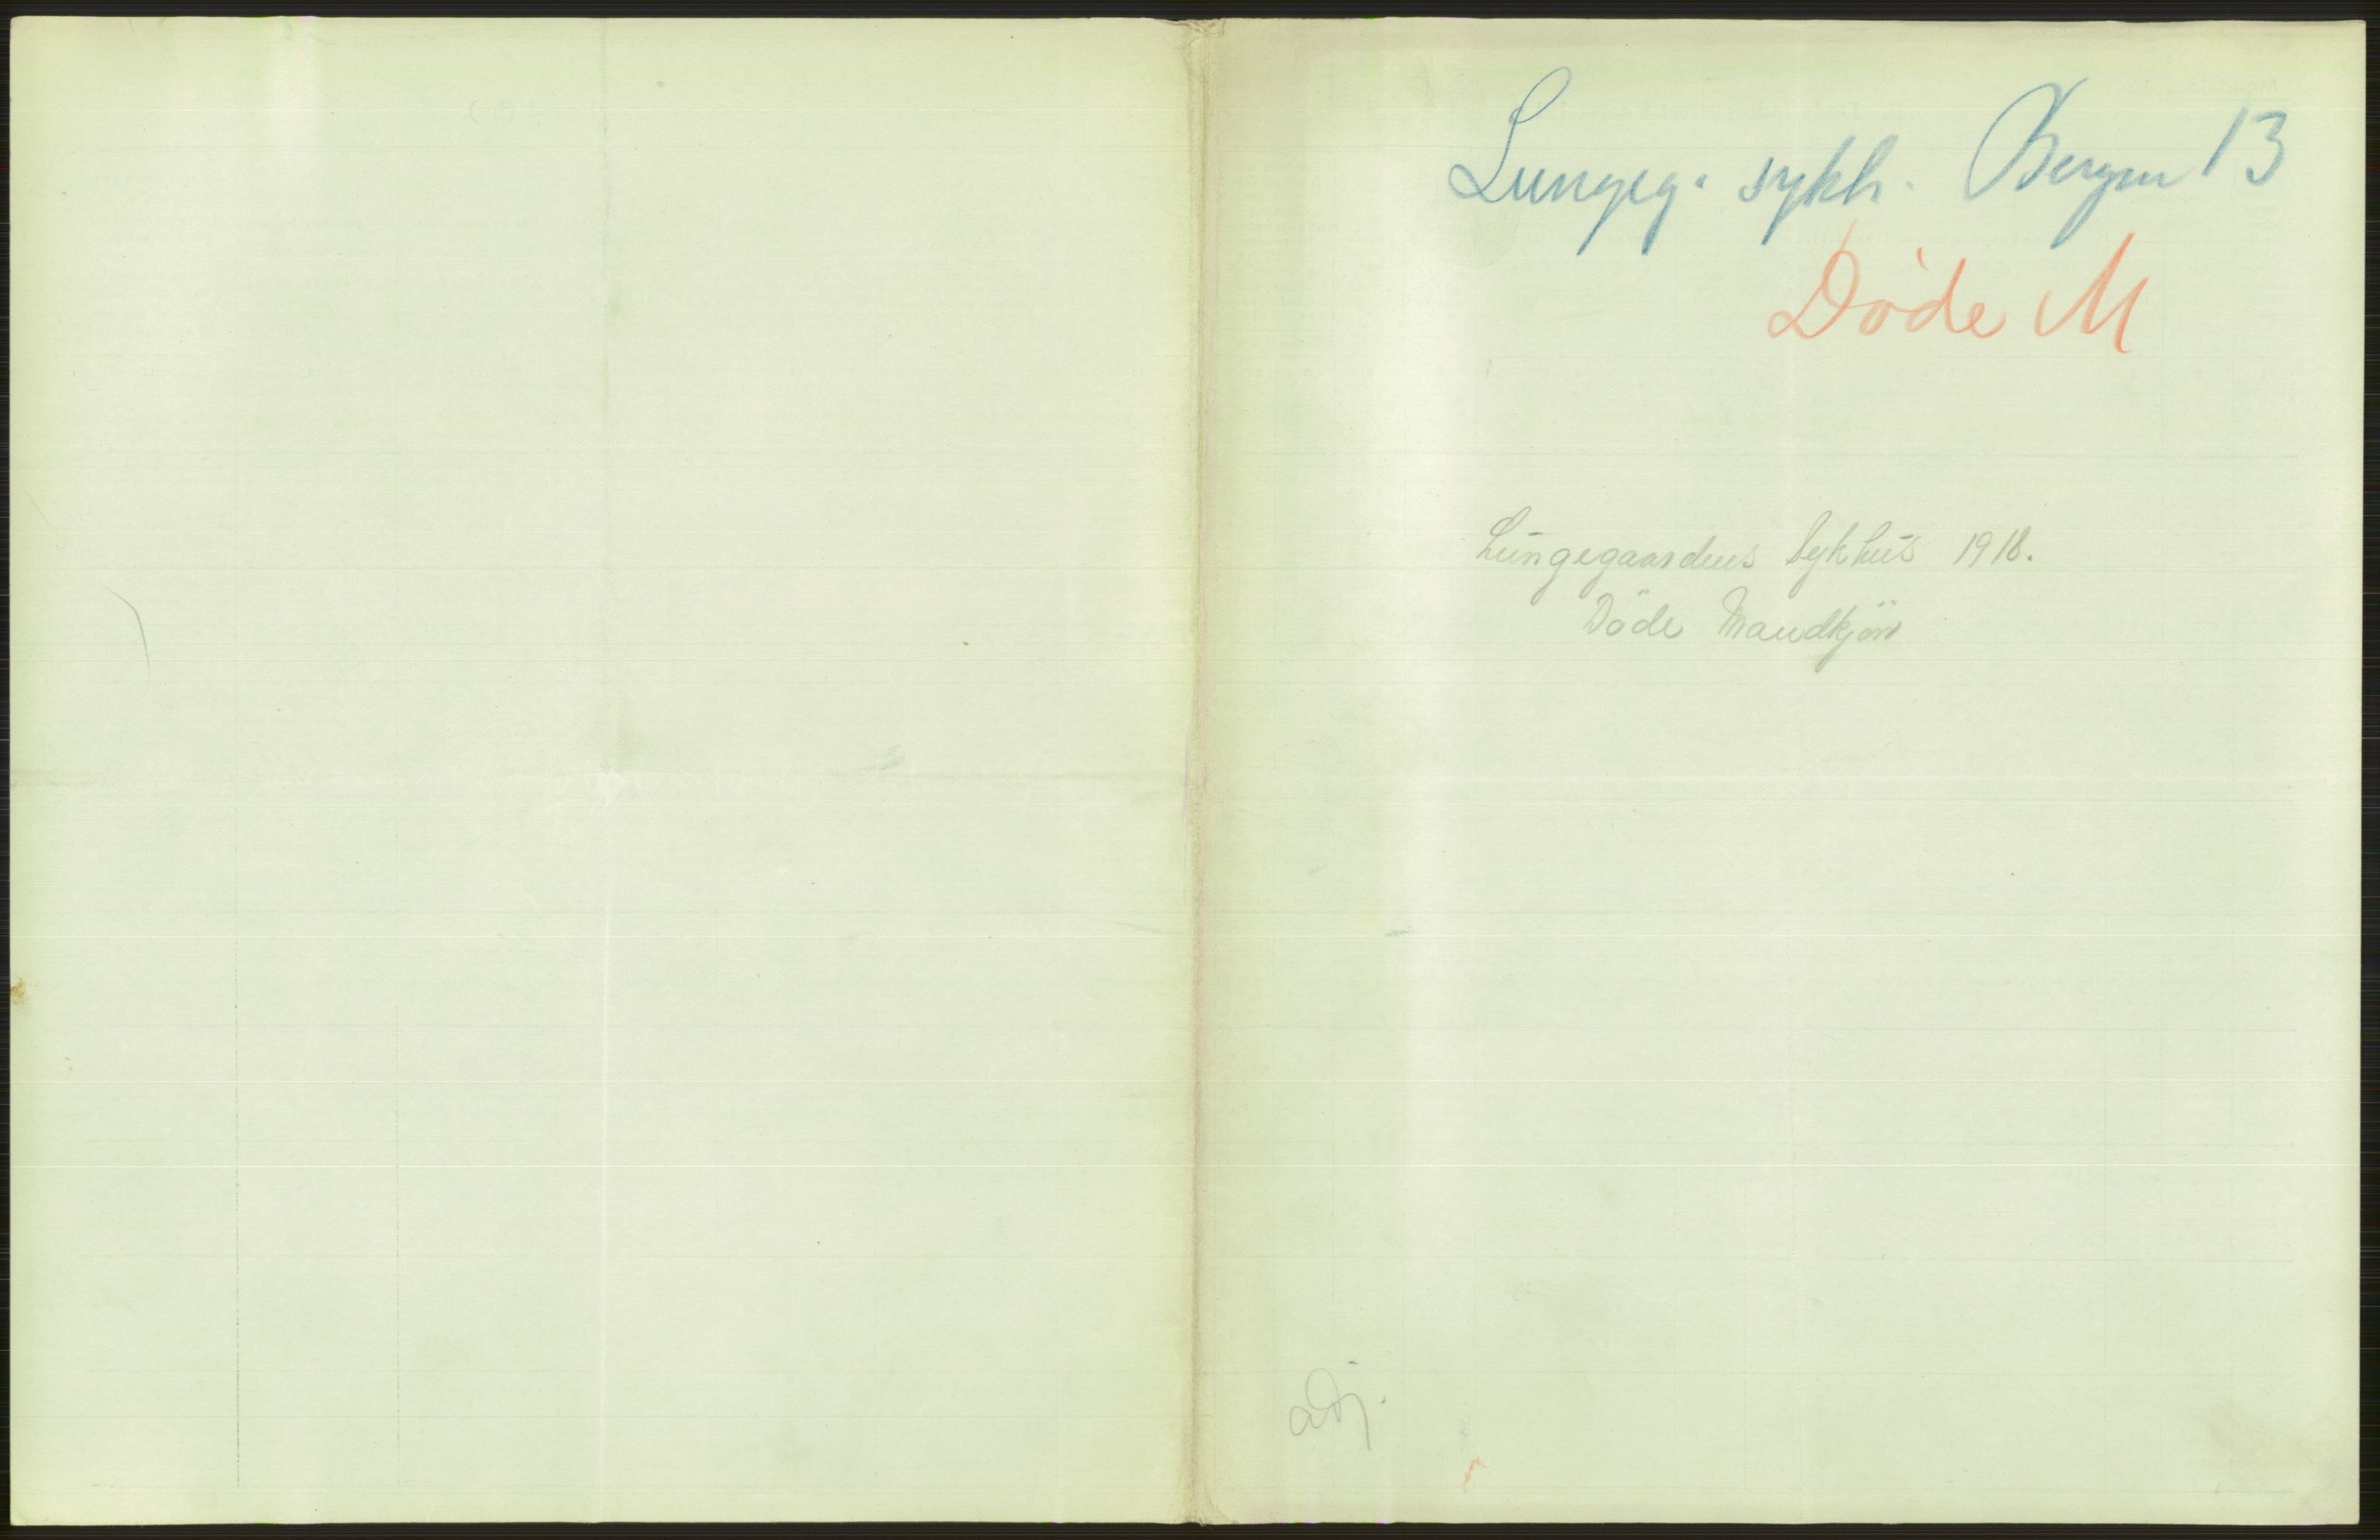 Lungeg. sykh. Bergen 13
Døde M
Lungegaardens Sykhus 1918.
Döde Mandkjön
adj.